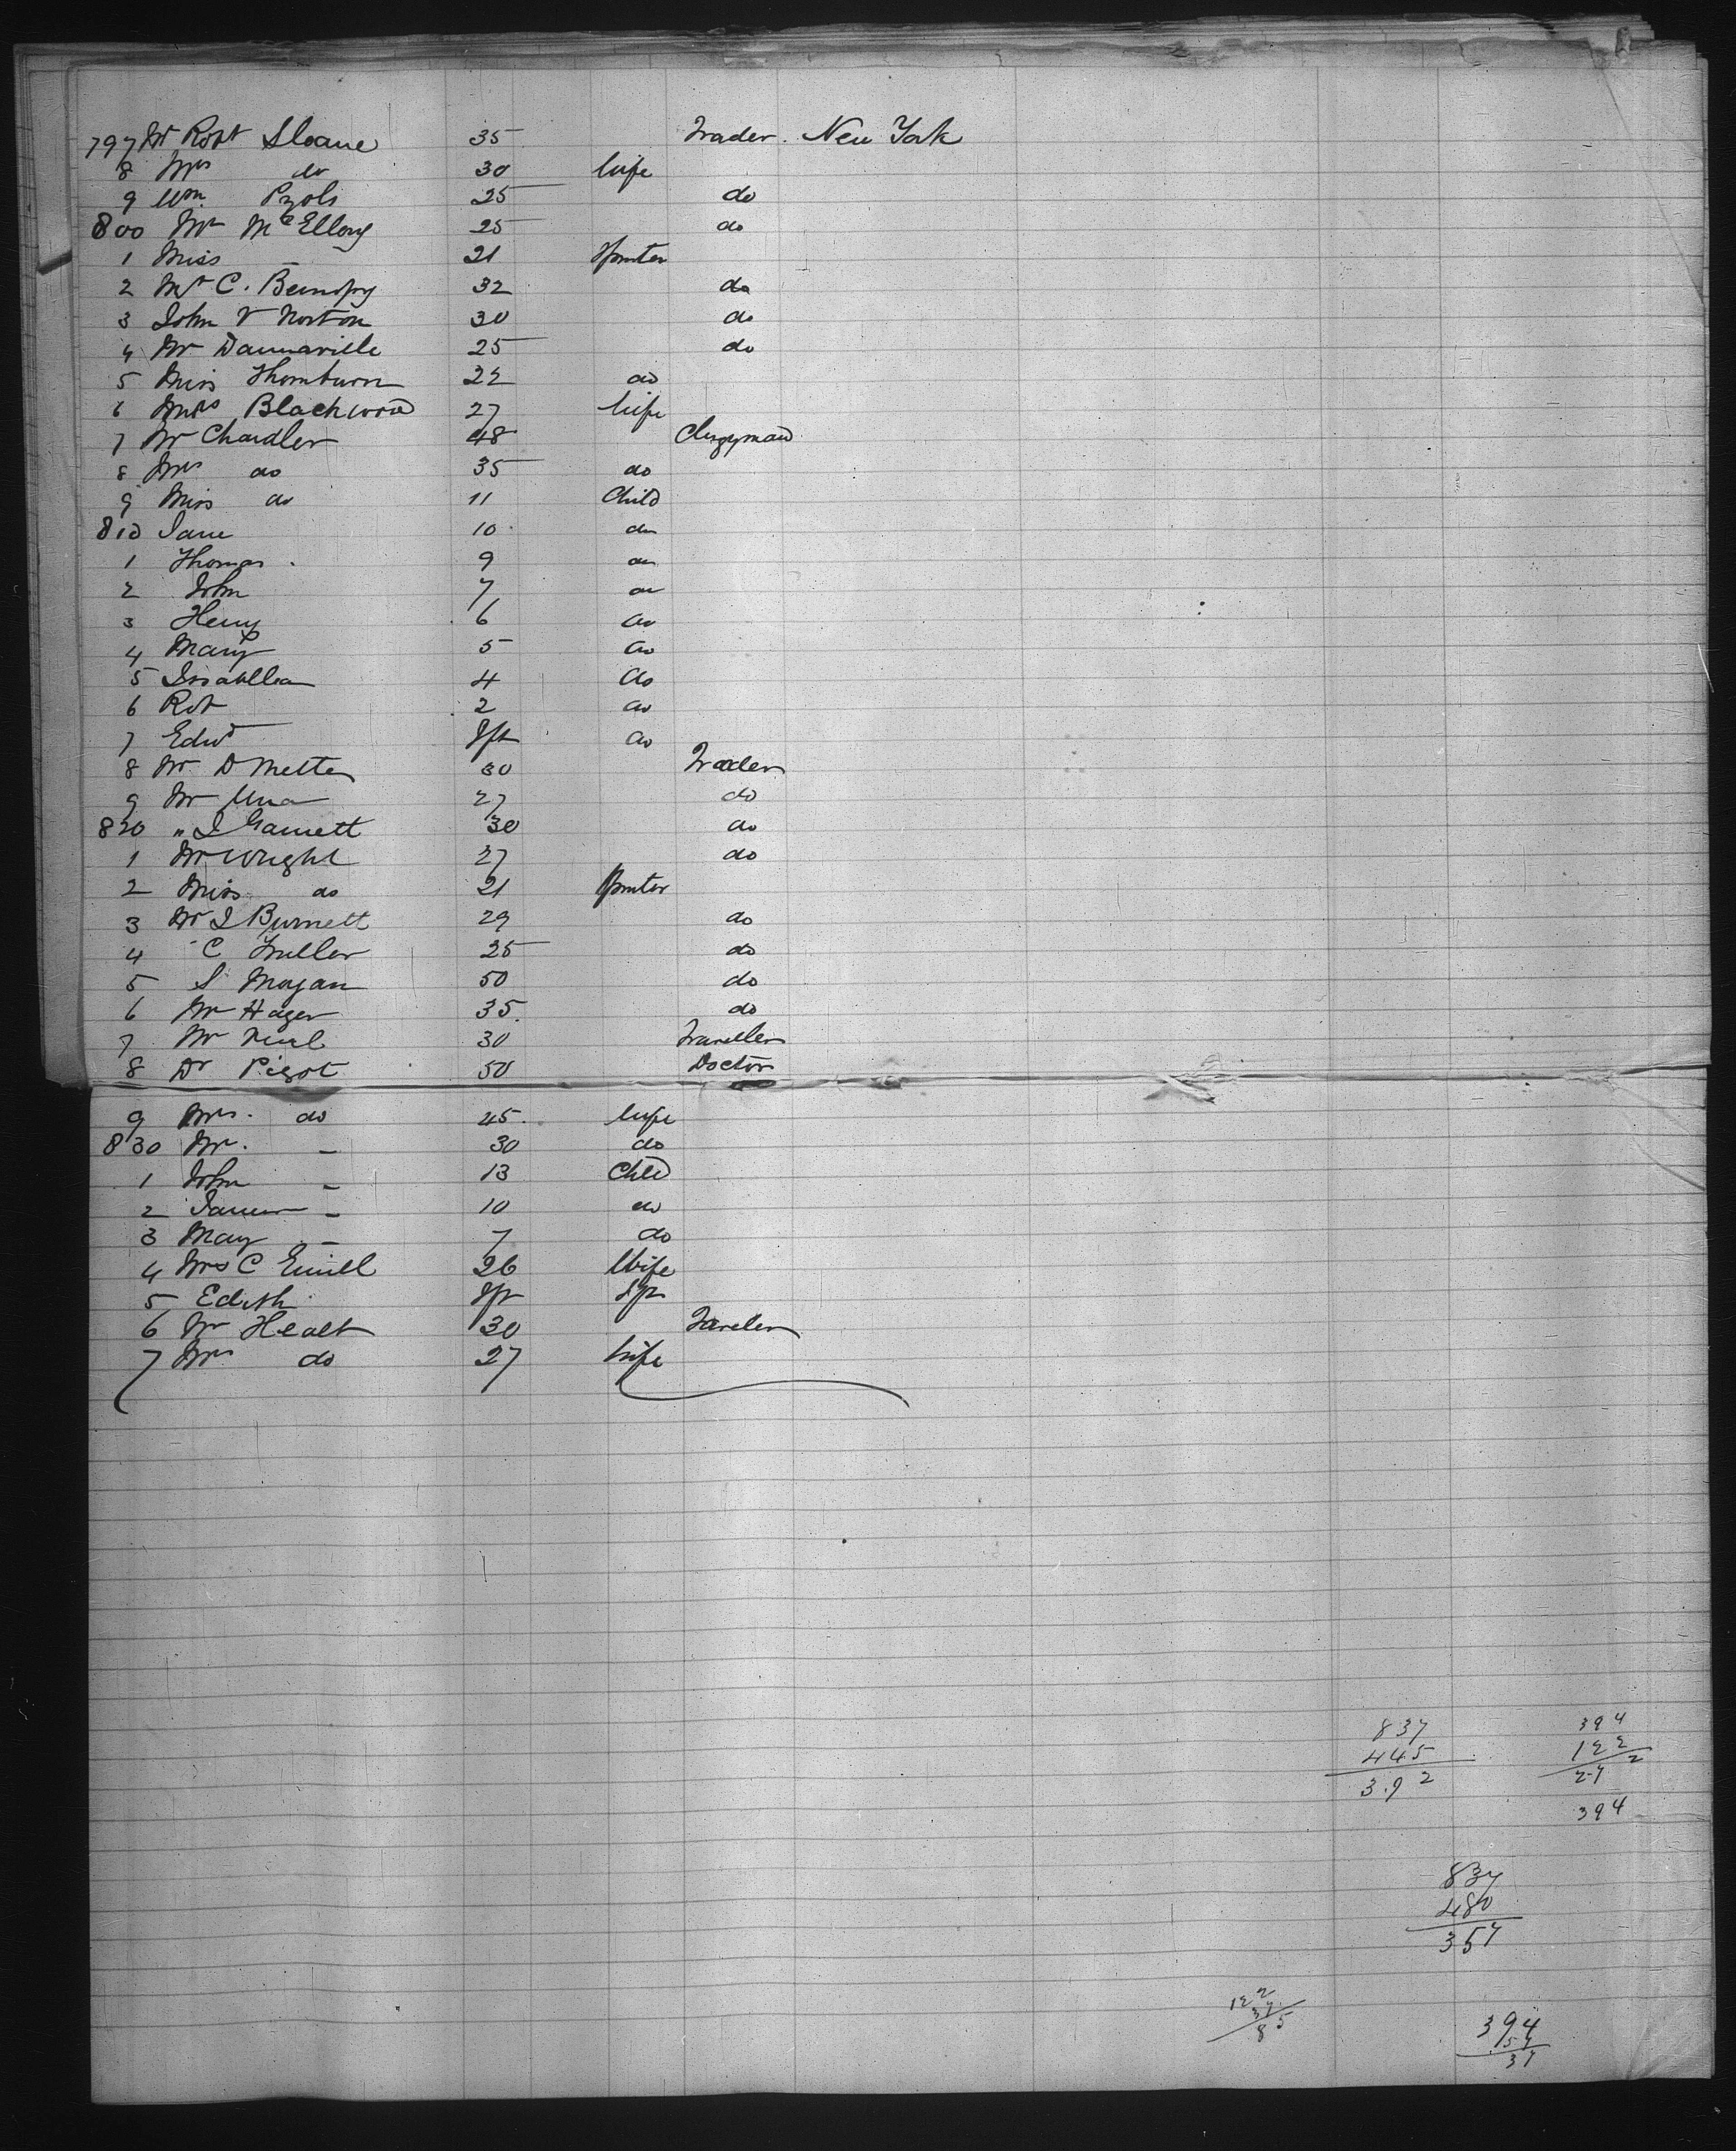 797 Mr Robt Sloane 35 Trader. New York
8 Mrs do 30 Wife
9 Wm. 25 do
800 Mr McEllony 25 do
1 Miss — 21 Spinster
2 Mr C. 32 do
3 John V Norton 30 do
4 Mr Dannaville 25 do
5 Miss Thornburn 22 do
6 Mrs Blackwood 27 Wife
7 Mr Chandler 48 Clergyman
8 Mrs do 35 do
9 Miss do 11 Child
810 Jane 10 do
1 Thomas 9 do
2 John 7 do
3 Henry 6 do
4 Mary 5 do
5 Issabella 4 do
6 Rot 2 do
7 Edwd do
8 Mr D Metter 30 Trader
9 Mr 27 do
820 " J Garnett 30 do
1 Mr Wright 27 do
2 Miss do 21 Spinster
3 Mr J Burnett 29 do
4 " C 25 do
5 S Morgan 50 do
6 Mr Hager 35. do
7 Mr 30 Traveller
8 Dr Pigot 50 Doctor
9 Mrs. do 45. Wife
830 Mr. — 30 do
1 John — 13 Child
2 James — 10 do
3 May — 7 do
4 Mrs C 26 Wife
5 Edith
6 Mr Healt 30 Traveler
7 Mrs do 27 Wife
837
445
392
394
122
272
394
837
480
357
122
37
85
394
357
37